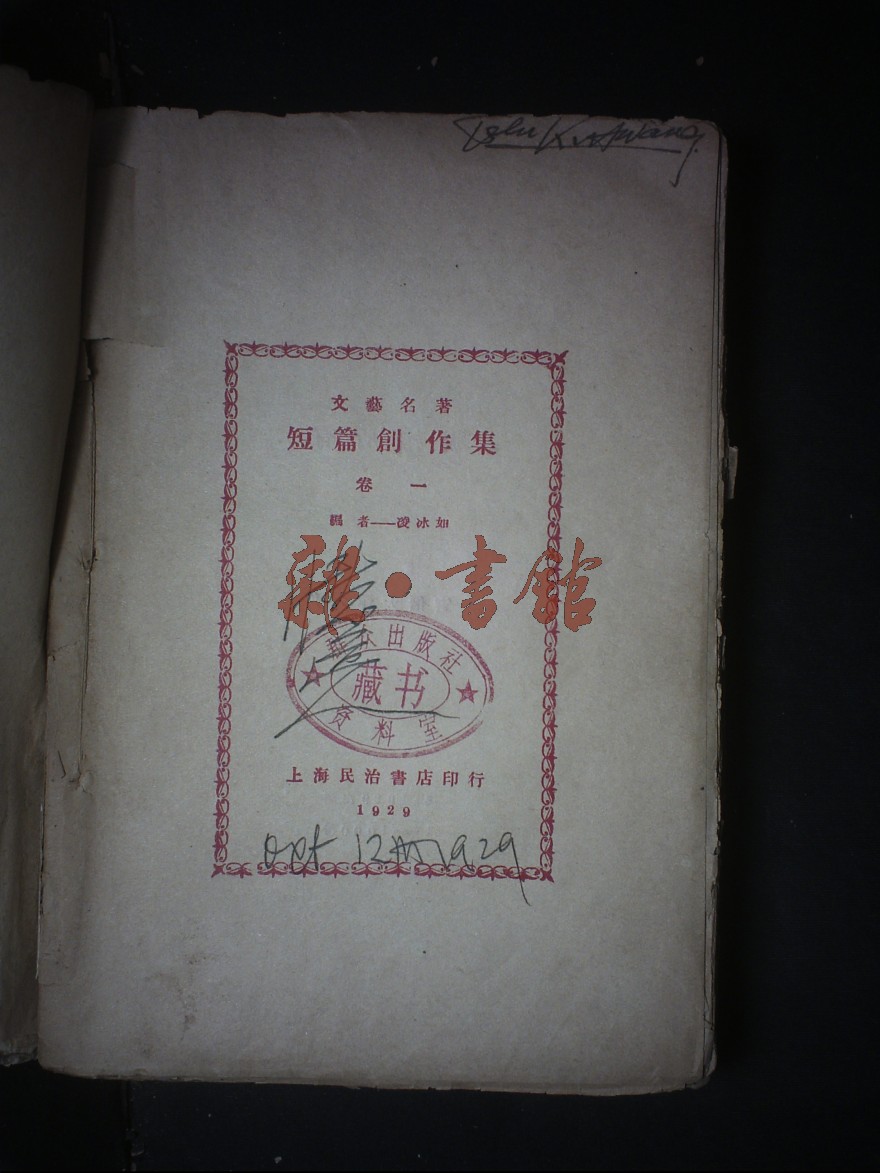 文藝名著
短篇創作集
卷一
編者——凌冰如
雜·書館
群众出版社
藏书
资料室
上海民治書店印行
1929
12th 1929